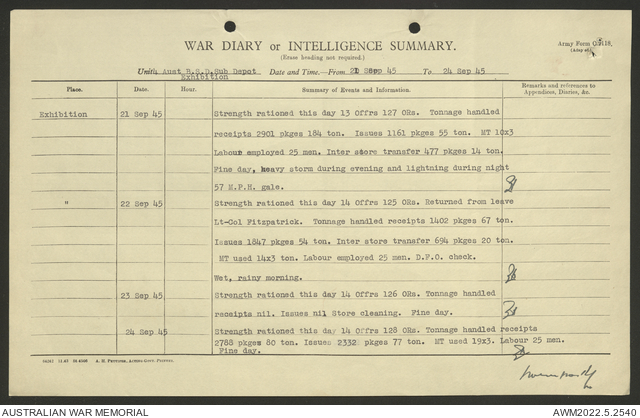 WAR DIARY or INTELLIGENCE SUMMARY.
(Erase heading not required.)
Army Form
Unit: Aust B.S.D. Sub Depot Date and Time.—From 21 Sep 45 To 24 Sep 45
Exhibition
Place. Date. Hour. Summary of Events and Information. Remarks and references to Appendices, Diaries, &c.
Exhibition 21 Sep 45 Strength rationed this day 13 Offrs 127 ORs. Tonnage handled
receipts 2901 pkges 184 ton. Issues 1161 pkges 55 ton. MT 10x3
Labour employed 25 men. Inter store transfer 477 pkges 14 ton.
Fine day, heavy storm during evening and lightning during night
57 M.P.H. gale.
" 22 Sep 45 Strength rationed this day 14 Offrs 125 ORs. Returned from leave
Lt-Col Fitzpatrick. Tonnage handled receipts 1402 pkges 67 ton.
Issues 1847 pkges 54 ton. Inter store transfer 694 pkges 20 ton.
MT used 14x3 ton. Labour employed 25 men. D.F.O. check.
Wet, rainy morning.
23 Sep 45 Strength rationed this day 14 Offrs 126 ORs. Tonnage handled
receipts nil. Issues nil Store cleaning. Fine day.
24 Sep 45 Strength rationed this day 14 Offrs 128 ORs. Tonnage handled receipts
2788 pkges 80 ton. Issues 2332 pkges 77 ton. MT used 19x3. Labour 25 men.
Fine day.
AUSTRALIAN WAR MEMORIAL AWM2022.5.2540